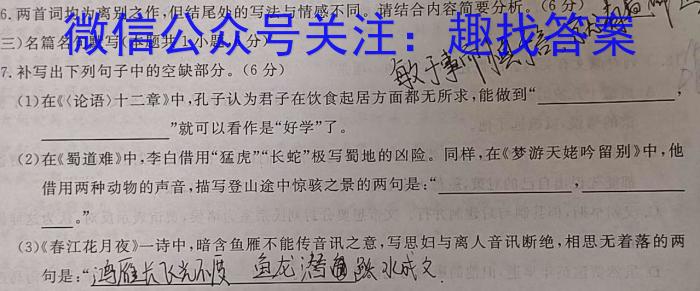 6.两首词均为离别之作,但结尾处的写法与情感不同。请结合内容简要分析。(6分)
微信公众号关注:趣找答案
三)名篇名句默写(本题共1小题,6分)
7.补写出下列句子中的空缺部分。(6分)
敏于事而
(1)在《〈论语〉十二章》中,孔子认为君子在饮食起居方面都无所求,能做到“____________,
____________”就可以看作是“好学”了。
(2)在《蜀道难》中,李白借用“猛虎”“长蛇”极写蜀地的凶险。同样,在《梦游天姥吟留别》中,他
借用两种动物的声音,描写登山途中惊骇之景的两句是:“____________,____________
____。”
(3)《春江花月夜》一诗中,暗含鱼雁不能传音讯之意,写思妇与离人音讯断绝,相思无着落的两
句是:“鸿雁长飞光不度 鱼龙潜跃水成文.